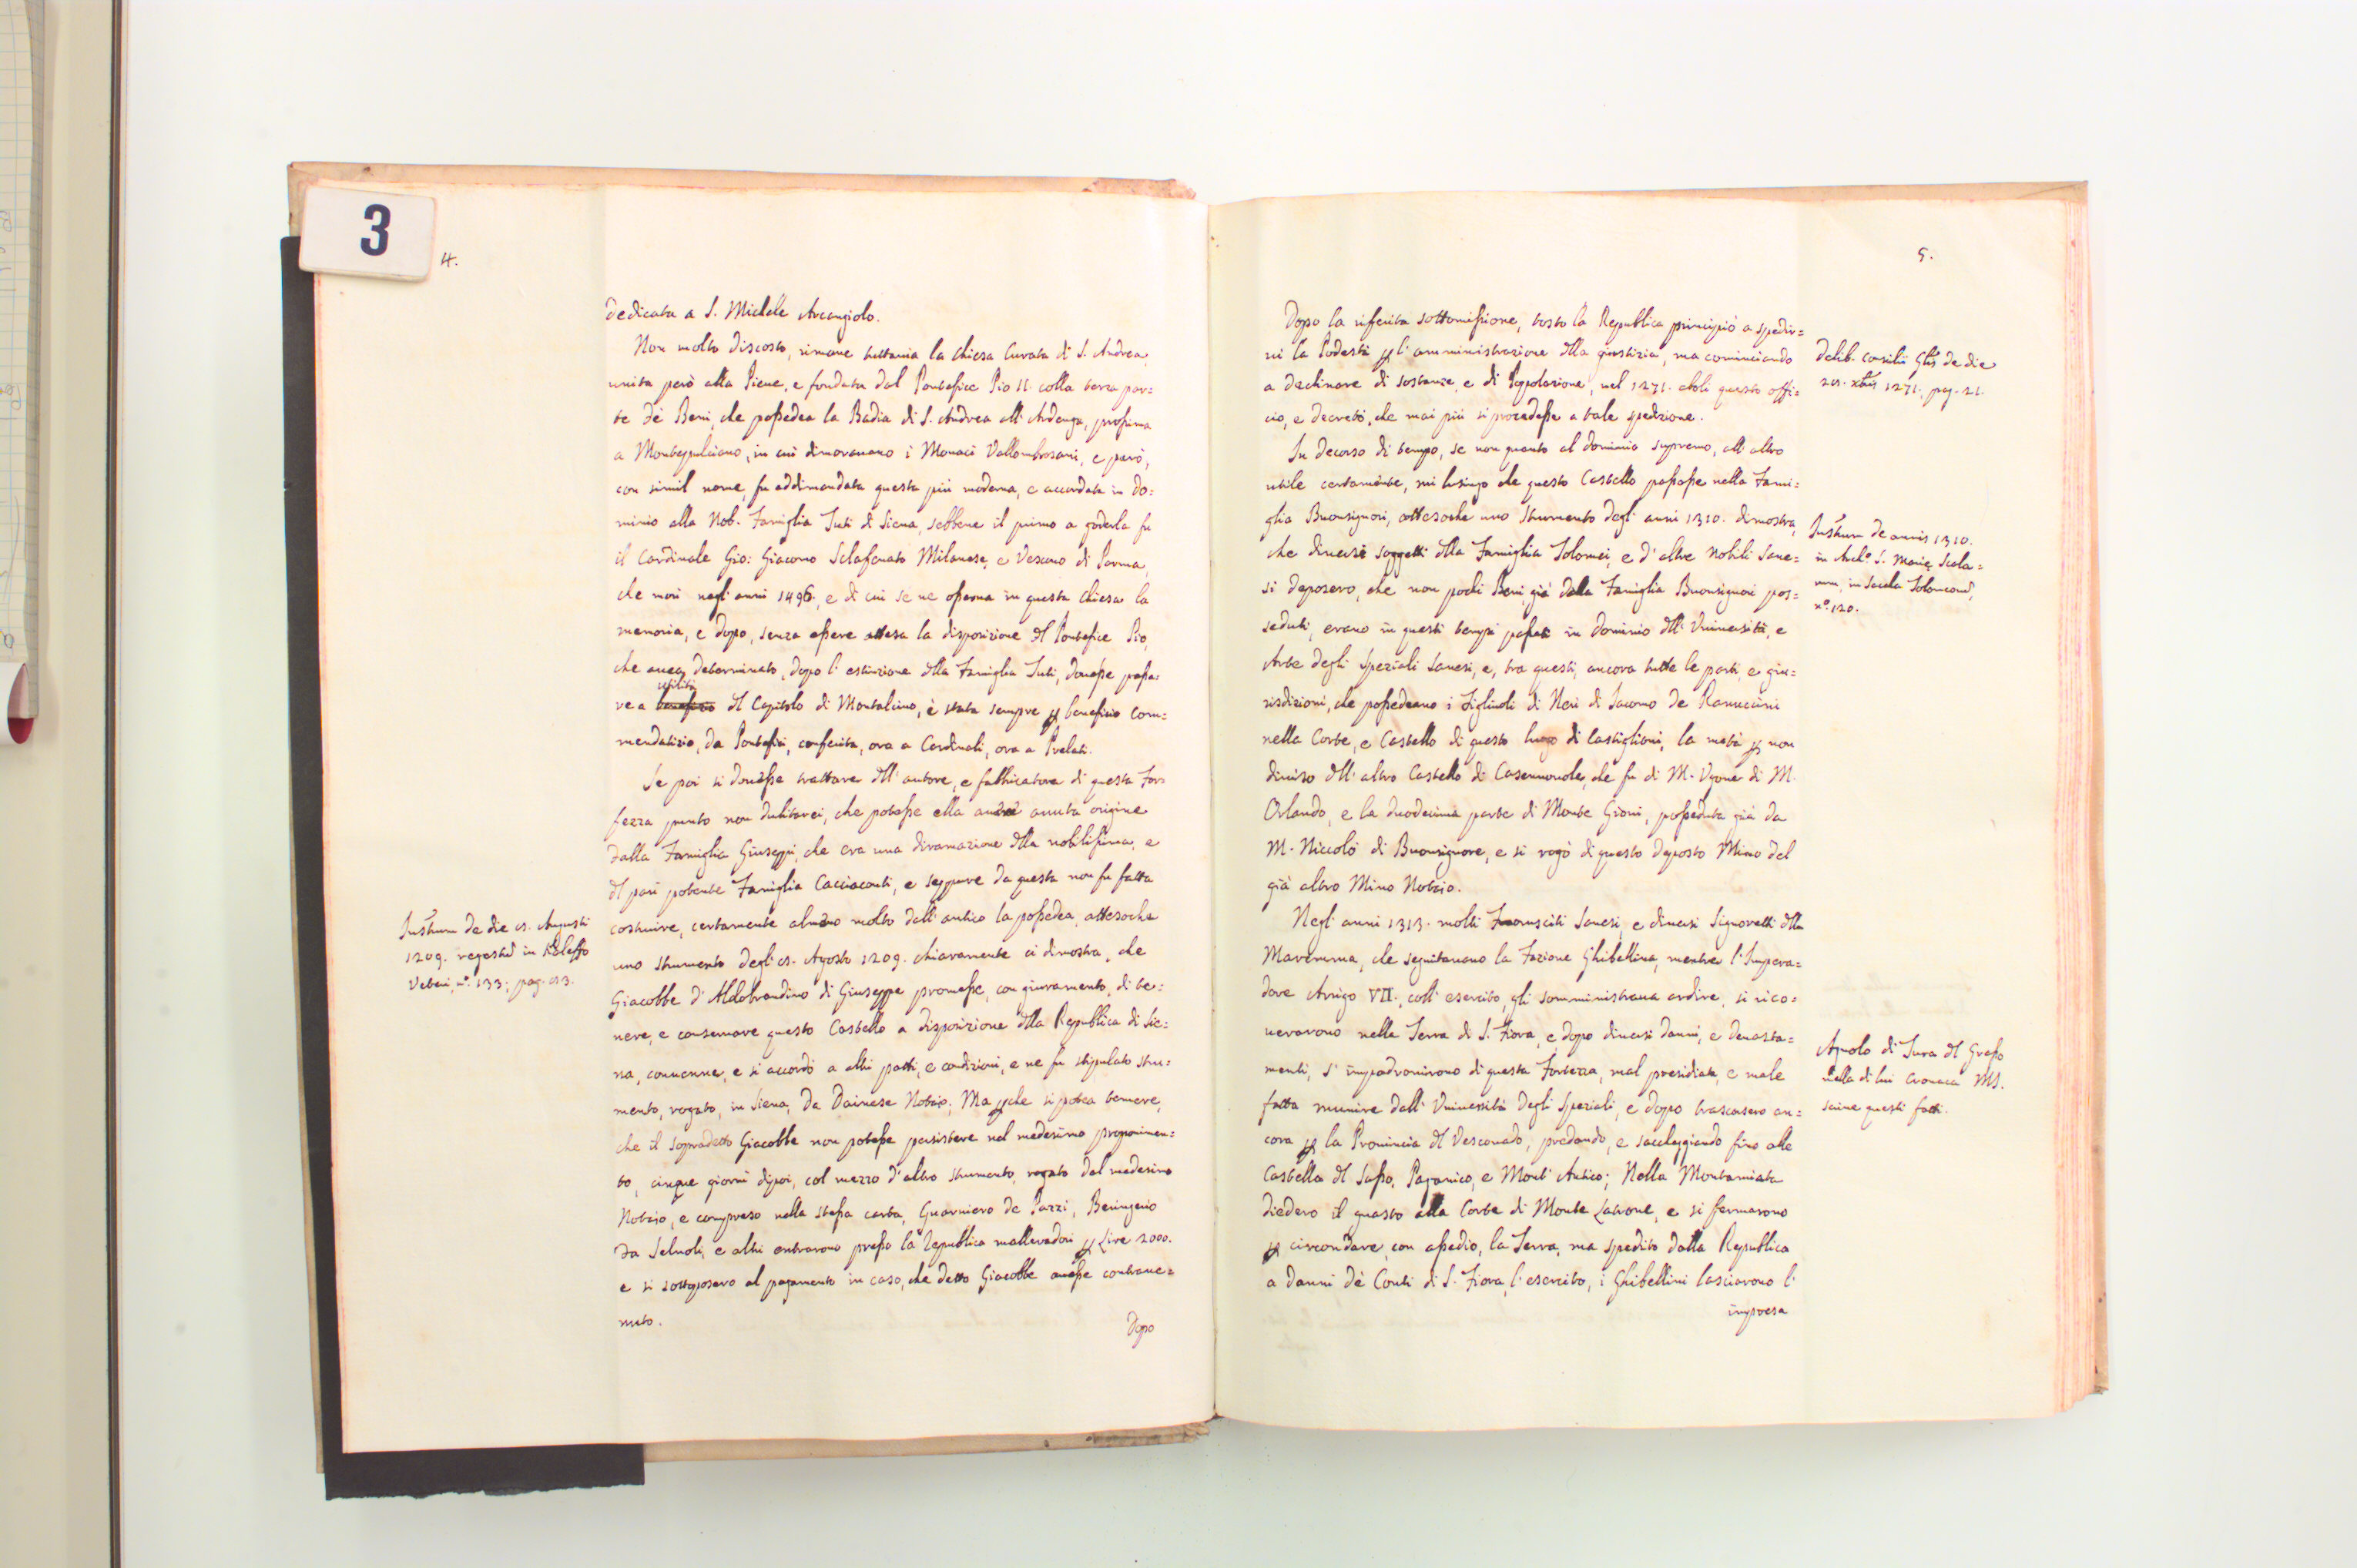 3
4.
dedicata a S. Michele Arcangiolo.
Non molto discosto, rimane tuttavia la Chiesa Curata di S. Andrea,
unita però alla Pieve, e fondata dal Pontefice Pio II. colla terza par=
te de' Beni, che possedea la Badia di S. Andrea all'Ardenga, prossima
a Montepulciano, in cui dimoravano i Monaci Vallombrosani, e però,
con simil nome, fu addimandata questa più moderna, e accordata in do=
minio alla Nob. Famiglia Tuti di Siena, sebbene il primo a goderla fu
il Cardinale Gio: Giacomo Sclafenato Milanese, e Vescovo di Parma,
che morì negl'anni 1496., e di cui se ne osserva in questa Chiesa la
memoria, e dopo, senza essere attesa la disposizione dl Pontefice Pio,
che avea determinato, dopo l'estinzione dlla Famiglia Tuti, dovesse passa=
re a utilità dl Capitolo di Montalcino, è stata sempre p benefizio com=
mendatizio, da Pontefici, conferita, ora a Cardinali, ora a Prelati.
Se poi si dovesse trattare dll'autore, e fabbricatore di questa For=
tezza punto non dubitarei, che potesse ella avere avuta origine
dalla Famiglia Giuseppi, che era una diramazione dlla nobilissima, e
dl pari potente Famiglia Cacciaconti, e seppure da questa non fu fatta
costruire, certamente almeno molto dall'antico la possedea, attesoche
uno strumento degl' Agosto 1209. chiaramente ci dimostra, che
Giacobbe d'Aldobrandino di Giuseppe promesse, con giuramento, di te=
nere, e conservare questo Castello a disposizione dlla Republica di Sie=
na, convenne, e si accordò a altri patti, e condizioni, e ne fu stipulato stru=
mento, rogato, in Siena, da Dainese Notaio; Ma pche si potea temere,
che il sopradetto Giacobbe non potesse persistere nel medesimo proponimen=
to, cinque giorni dipoi, col mezzo d'altro strumento, rogato dal medesimo
Notaio, e compreso nella stessa carta, Guarniero de Pazzi, Beringerio
da Selvoli, e altri entrarono presso la Republica mallevadori p Lire 2000.
e si sottoposero al pagamento in caso, che detto Giacobbe avesse contrave=
nuto.
Dopo
Instrum de die Augusti
1209. regestrd in Kaleffo
Veteri, n°. 133; pag.
5.
Dopo la riferita sottomissione, tosto la Republica principiò a spedir=
vi la Podestà p l'amministrazione dlla giustizia, ma cominciando
a declinare di sostanze, e di Popolazione, nel 1271. abolì questo offi=
cio, e decretò, che mai più si procedesse a tale spedizione.
In decorso di tempo, se non quanto al dominio supremo, all'altro
utile certamente, mi lusingo che questo Castello passasse nella Fami=
glia Buonsignori, attesoche uno strumento degl'anni 1310. dimostra,
che diversi soggetti dlla Famiglia Tolomei, e d'altre Nobili Sane=
si deposero, che non pochi Beni, già dalla Famiglia Buonsignori pos=
seduti, erano in questi tempi passati in dominio dll'Università, e
Arte degli Speziali Sanesi, e, tra questi, ancora tutte le parti, e giu=
risdizioni, che possedeano i Figliuoli di Neri di Iacomo de Ranuccini
nella Corte, e Castello di questo luogo di Castiglioni, la metà p non
diviso dll'altro Castello di Casennovole, che fu di M. Ugone di M.
Orlando, e la duodecima parte di Monte Giovi, posseduta già da
M. Niccolò di Buonsignore, e si rogò di questo deposto Mino del
già altro Mino Notaio.
Negl'anni 1313. molti Forusciti Sanesi, e diversi Signoretti dlla
Maremma, che seguitavano la Fazione Ghibellina, mentre l'Impera=
dore Arrigo VII., coll'esercito, gli somministrava ardire, si rico=
verarono nella Terra di S. Fiora, e dopo diversi danni, e devasta=
menti, s'impadronirono di questa Fortezza, mal presidiata, e male
fatta munire dall'Università degli Speziali, e dopo trascorsero an=
cora p la Provincia dl Vescovado, predando, e saccheggiando fino alle
Castella dl Sasso, Paganico, e Mont'Antico; Nella Montamiata
diedero il guasto alla Corte di Monte Latrone, e si fermarono
p circondare, con assedio, la Terra, ma spedito dalla Republica
a danni de' Conti di S. Fiora, l'esercito, i Ghibellini lasciarono l'
impresa
Delib. Consilii Glis de die
Xbris 1271. pag. 21.
Instrum de annis 1310.
in Arch°. S. Marie Scala=
rum, in sacula Tolomeord,
n°. 120.
Agnolo di Tura dl Grasso
nella di lui Cronaca MS.
scrive questi fatti.